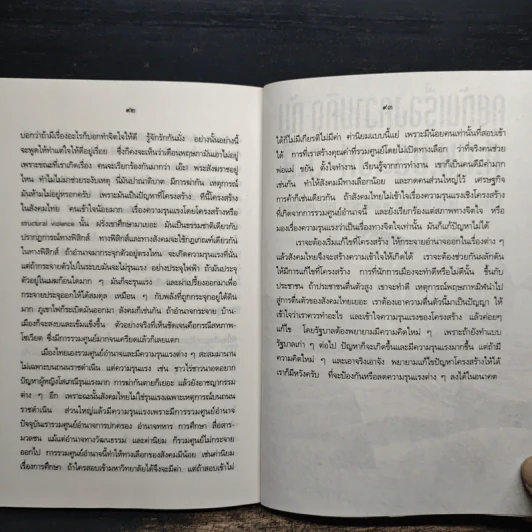 ๙๒
บอกว่าถ้ามีเรื่องอะไรก็บอกทำจิตใจให้ดี รู้จักรักกันมั่ง อย่างนั้นอย่างนี้
จะพูดให้ทำแต่ใจให้ดีอยู่เรื่อย ซึ่งก็คงจะเห็นว่าเดือนพฤษภามันเอาไม่อยู่
เพราะขณะที่เราเกิดเรื่อง คนจะเรียกร้องกันมากว่า เอ๊ะ! พระสังฆราชอยู่
ไหน ทำไมไม่มาช่วยระงับเหตุ นี่มันปาณาติบาต มีการฆ่ากัน เหตุการณ์
มันห้ามไม่อยู่หรอกครับ เพราะมันเป็นปัญหาที่โครงสร้าง ทีนี้โครงสร้าง
ในสังคมไทย คนเข้าใจน้อยมาก เรื่องความรุนแรงโดยโครงสร้างหรือ
structural violence นั้น ฝรั่งเขาศึกษามาเยอะ มันเป็นธรรมชาติเดียวกับ
ปรากฏการณ์ทางฟิสิกส์ ทางฟิสิกส์และทางสังคมจะใช้กฎเกณฑ์เดียวกัน
ในทางฟิสิกส์ ถ้าอำนาจมากระจุกตัวอยู่ตรงไหน จะเกิดความรุนแรงที่นั่น
แต่ถ้ากระจายตัวไปในระบบมันจะไม่รุนแรง อย่างประจุไฟฟ้า ถ้ามันประจุ
ตัวอยู่ในเมฆก้อนใดมาก ๆ มันก็จะรุนแรง และผ่าเปรี้ยงออกมาเพื่อ
กระจายประจุออกให้ได้สมดุล เหมือน ๆ กับพลังที่ถูกกระจุกอยู่ใต้ดิน
มาก ภูเขาไฟก็ระเบิดมันออกมา สังคมก็เช่นกัน ถ้าอำนาจกระจาย บ้าน-
เมืองก็จะสงบและเข้มแข็งขึ้น ตัวอย่างจริงที่เห็นชัดเจนคือกรณีสหภาพ-
โซเวียต ซึ่งมีการรวมศูนย์อำนาจมากจนเครียดแล้วก็เลยแตก
เมืองไทยเองรวมศูนย์อำนาจและมีความรุนแรงต่าง ๆ สะสมมานาน
ไม่เฉพาะบนถนนราชดำเนิน แต่ความรุนแรง เช่น ชาวไร่ชาวนาอดอยาก
ปัญหาผู้หญิงโสเภณีรุนแรงมาก การฆ่ากันตายก็เยอะ แล้วยังอาชญากรรม
ต่าง ๆ อีก เพราะฉะนั้นสังคมไทยไม่ใช่รุนแรงเฉพาะเหตุการณ์บนถนน
ราชดำเนิน ส่วนใหญ่แล้วมีความรุนแรงเพราะมีการรวมศูนย์อำนาจ
ปัจจุบันเรารวมศูนย์อำนาจการปกครอง อำนาจทหาร การศึกษา สื่อสาร-
มวลชน แม้แต่อำนาจทางวัฒนธรรม และค่านิยม ก็รวมศูนย์ไม่กระจาย
ออกไป การรวมศูนย์อำนาจทำให้ทางเลือกของสังคมมีน้อย เช่นค่านิยม
เรื่องการศึกษา ถ้าใครสอบเข้ามหาวิทยาลัยได้จึงจะมีค่า แต่ถ้าสอบเข้าไม่
๙๓
ได้ก็ไม่มีเกียรติไม่มีค่า ค่านิยมแบบนี้แย่ เพราะมีน้อยคนเท่านั้นที่สอบเข้า
ได้ การที่เราสร้างคุณค่าที่รวมศูนย์โดยไม่เปิดทางเลือก ว่าที่จริงคนช่วย
พ่อแม่ ขยัน ตั้งใจทำงาน เรียนรู้จากการทำงาน เขาก็เป็นคนดีมีค่ามาก
เช่นกัน ทำให้สังคมมีทางเลือกน้อย และกดคนส่วนใหญ่ไว้ เศรษฐกิจ
การค้าก็เช่นเดียวกัน ถ้าสังคมไทยไม่เข้าใจเรื่องความรุนแรงเชิงโครงสร้าง
ที่เกิดจากการรวมศูนย์อำนาจนี้ และยังเรียกร้องแต่สภาพทางจิตใจ หรือ
มองเรื่องความรุนแรงว่าเป็นเรื่องทางจิตใจเท่านั้น มันก็แก้ปัญหาไม่ได้
เราจะต้องเริ่มแก้ไขที่โครงสร้าง ให้กระจายอำนาจออกในเรื่องต่าง ๆ
แล้วสังคมไทยจึงจะสร้างความเข้าใจให้เกิดได้ เราจะต้องช่วยกันผลักดัน
ให้มีการแก้ไขที่โครงสร้าง การที่นักการเมืองจะทำดีหรือไม่ดีนั้น ขึ้นกับ
ประชาชน ถ้าประชาชนตื่นตัวสูง เขาจะทำดี เหตุการณ์พฤษภาฯมีผ่านไป
สู่การตื่นตัวของสังคมไทยเยอะ เราต้องเอาความตื่นตัวนี้มาเป็นปัญญา ให้
เข้าใจว่าเราควรทำอะไร และเข้าใจเรื่องความรุนแรงของโครงสร้าง แล้วค่อยๆ
แก้ไข โดยรัฐบาลต้องพยายามมีความคิดใหม่ ๆ เพราะถ้ายังทำแบบ
รัฐบาลเก่า ๆ ต่อไป ปัญหาก็จะเกิดขึ้นและมีความรุนแรงมากขึ้น แต่ถ้ามี
ความคิดใหม่ ๆ และเอาจริงเอาจัง พยายามแก้ไขปัญหาโครงสร้างให้ได้
เราก็มีหวังครับ ที่จะป้องกันหรือลดความรุนแรงต่าง ๆ ลงได้ในอนาคต